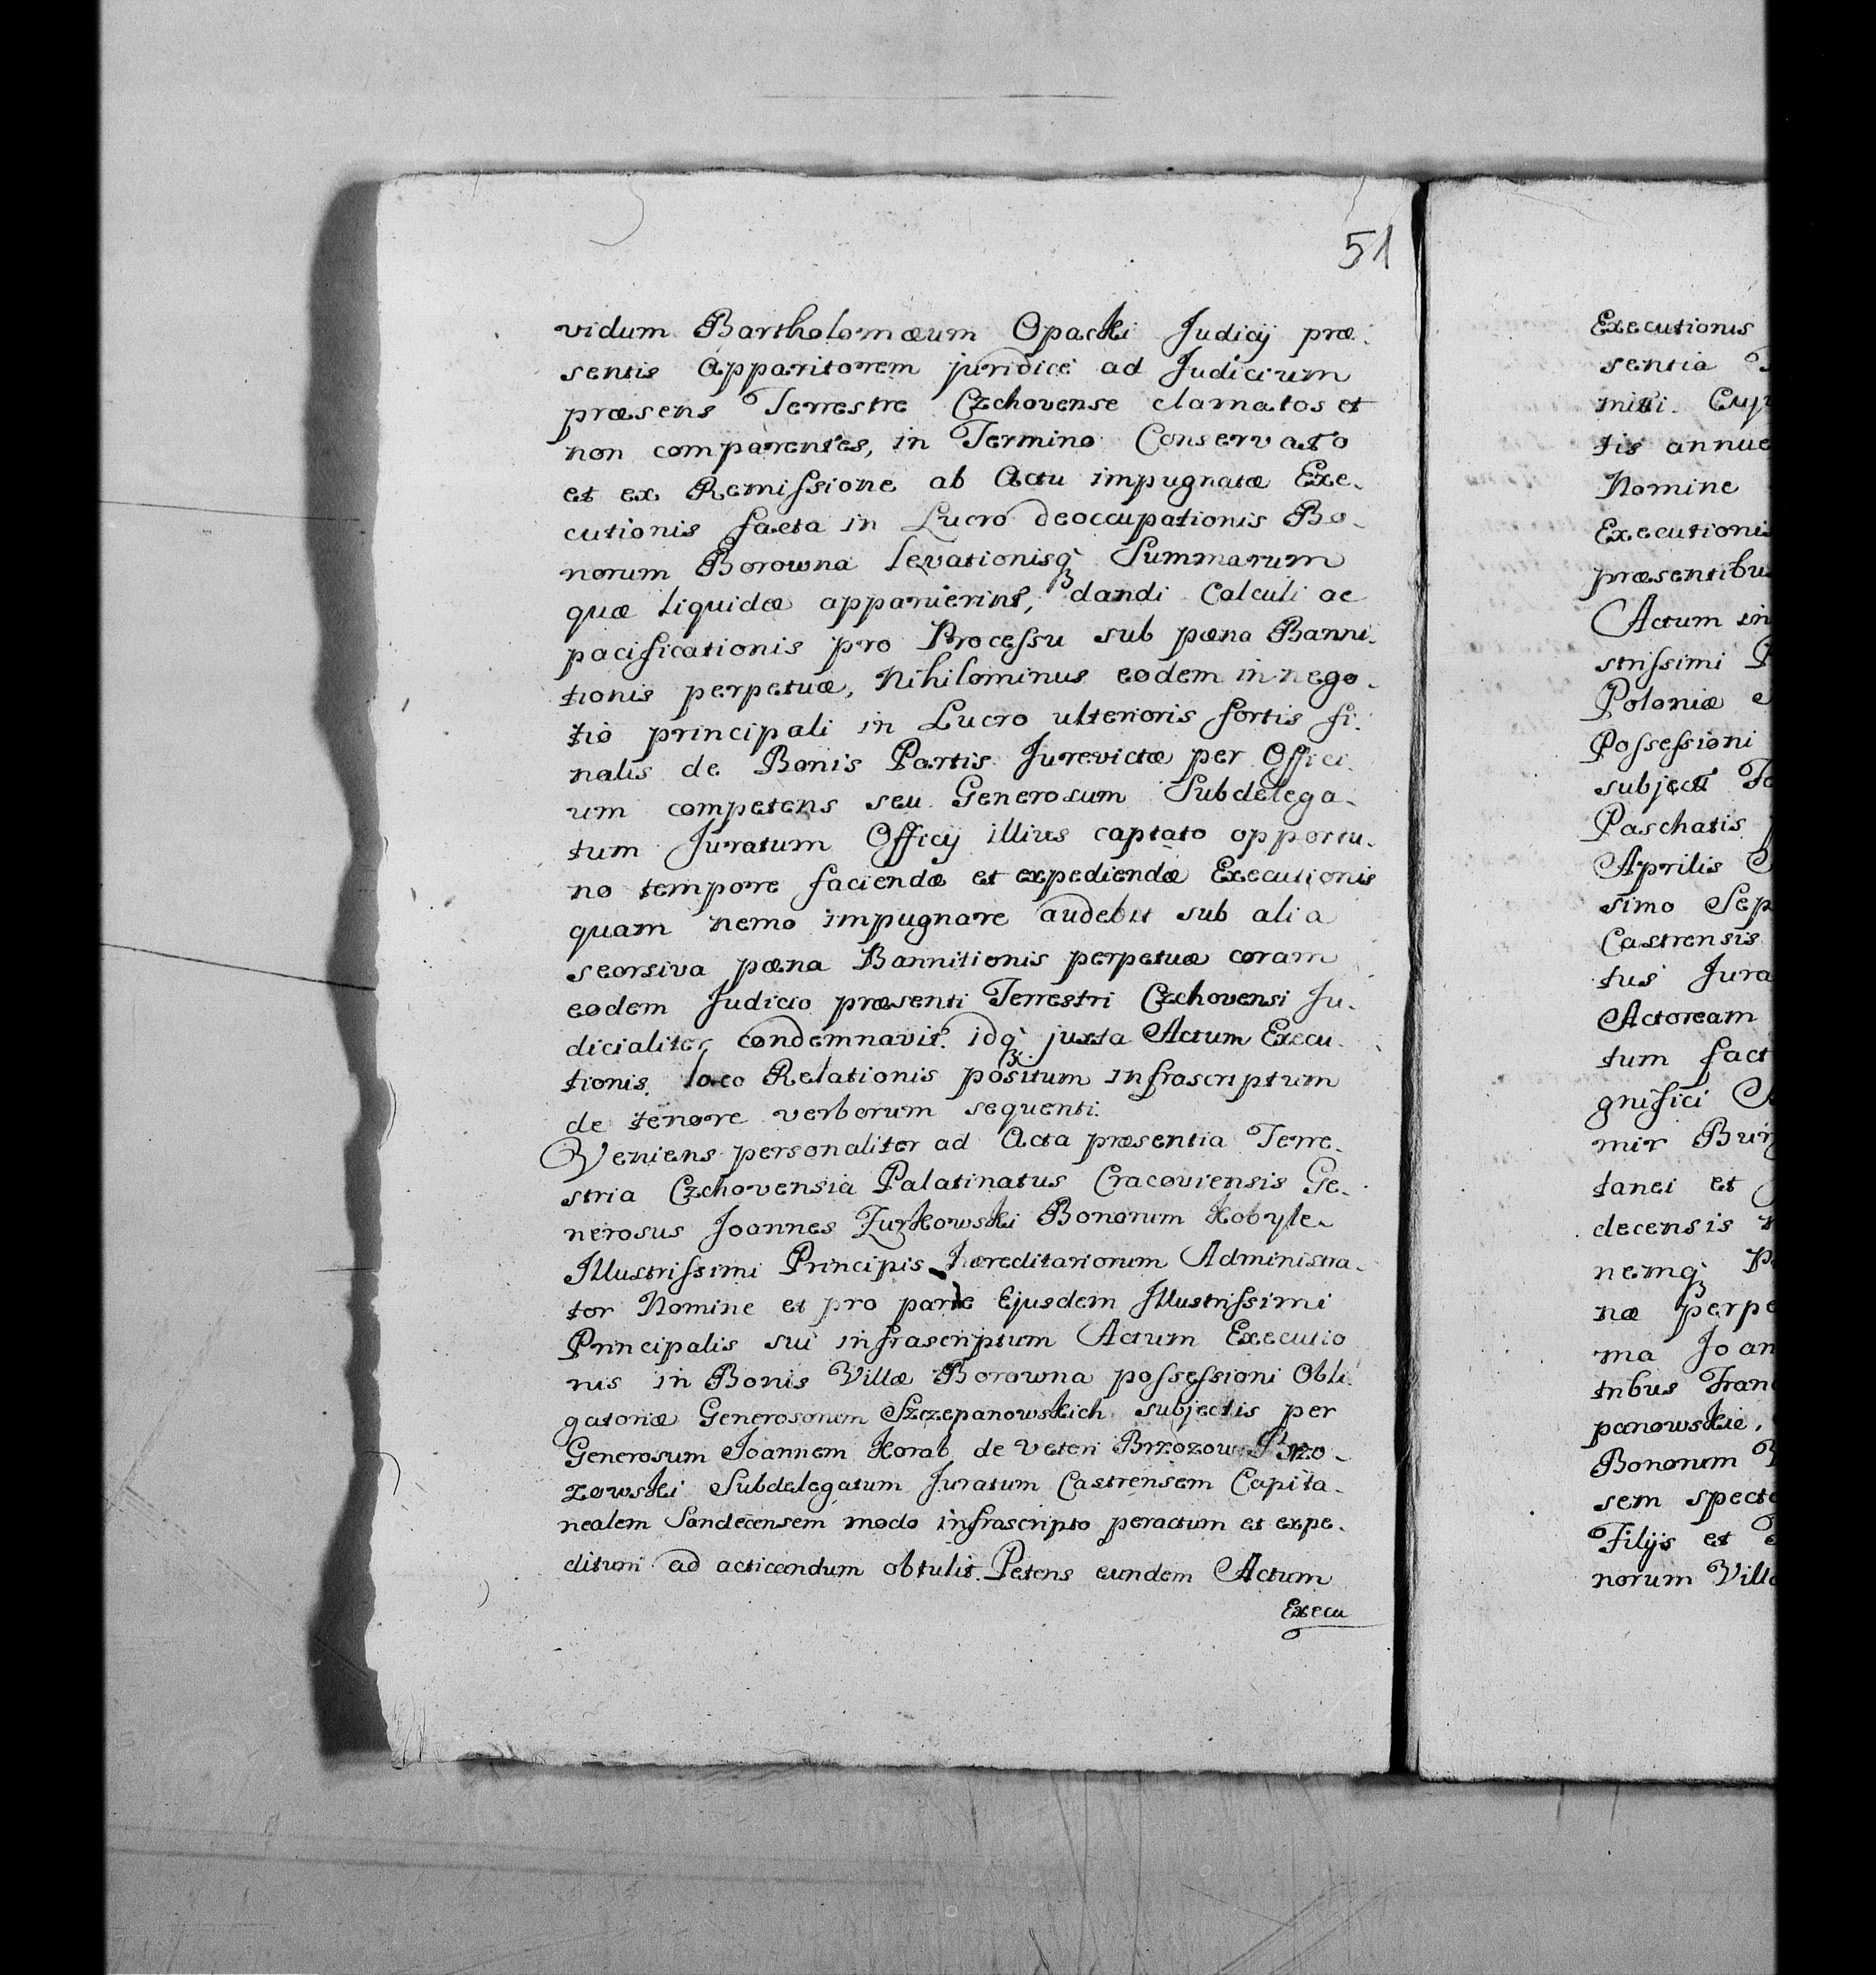 51
vidum Bartholomæum Opacki Judicij præ-
sentis Apparitorem juridicè ad Judicium
præsens Terrestre Czchovense clamatos et
non comparentes, in Termino Conservato
et ex Remissione ab Actu impugnatæ Exe-
cutionis facta in Lucro deoccupationis Bo-
norum Borowna levationisq3 Summarum
quæ liquidæ apparuerint, dandi Calculi ac
pacificationis pro Processu sub pæna Banni-
tionis perpetuæ, Nihilominus eodem in nego-
tio principali in Lucro ulterioris fortis fi-
nalis de Bonis Partis Jurevictæ per Offici-
um competens seu Generosum Subdelega-
tum Juratum Officij illius captato opportu-
no tempore faciendæ et expediendæ Executionis
quam nemo impugnare audebit sub alia
seorsiva pæna Bannitionis perpetuæ coram
eodem Judicio præsenti Terrestri Czchovensi Ju-
dicialiter condemnavit. idq3 juxta Actum Execu-
tionis loco Relationis positum infrascriptum
de tenore verborum sequenti.
Veniens personaliter ad Acta præsentia Terre-
stria Czchovensia Palatinatus Cracoviensis Ge-
nerosus Joannes Zurkowski Bonorum Kobyle
Illustrissimi Principis hæreditariorum Administra-
tor Nomine et pro parte Ejusdem Illustrissimi
Principalis sui infrascriptum Actum Executio
nis in Bonis Villæ Borowna possessioni Obli-
gatoriæ Generosorum Szczepanowskich subjectis per
Generosum Joannem Korab de Veteri Brzozow Brzo-
zowski Subdelegatum Juratum Castrensem Capita-
nealem Sandecensem modo infrascripto peractum et expe-
ditum ad acticandum obtulit. Petens eundem Actum
Execu
Executionis
sentia
annue
Nomine
Executionis
præsentibu
Actum in
strissimi P
Poloniæ
Possessioni
subject
Paschatis
Aprilis
simo Sep
Castrensis
tus Jura
Actoream
tum fact
gnifici
mir Bur
tanei et
decensis
nemq3 P
næ perpe
ma Joan
tribus Fran
panowskie,
Bonorum
sem specta
Filijs et
norum Villæ